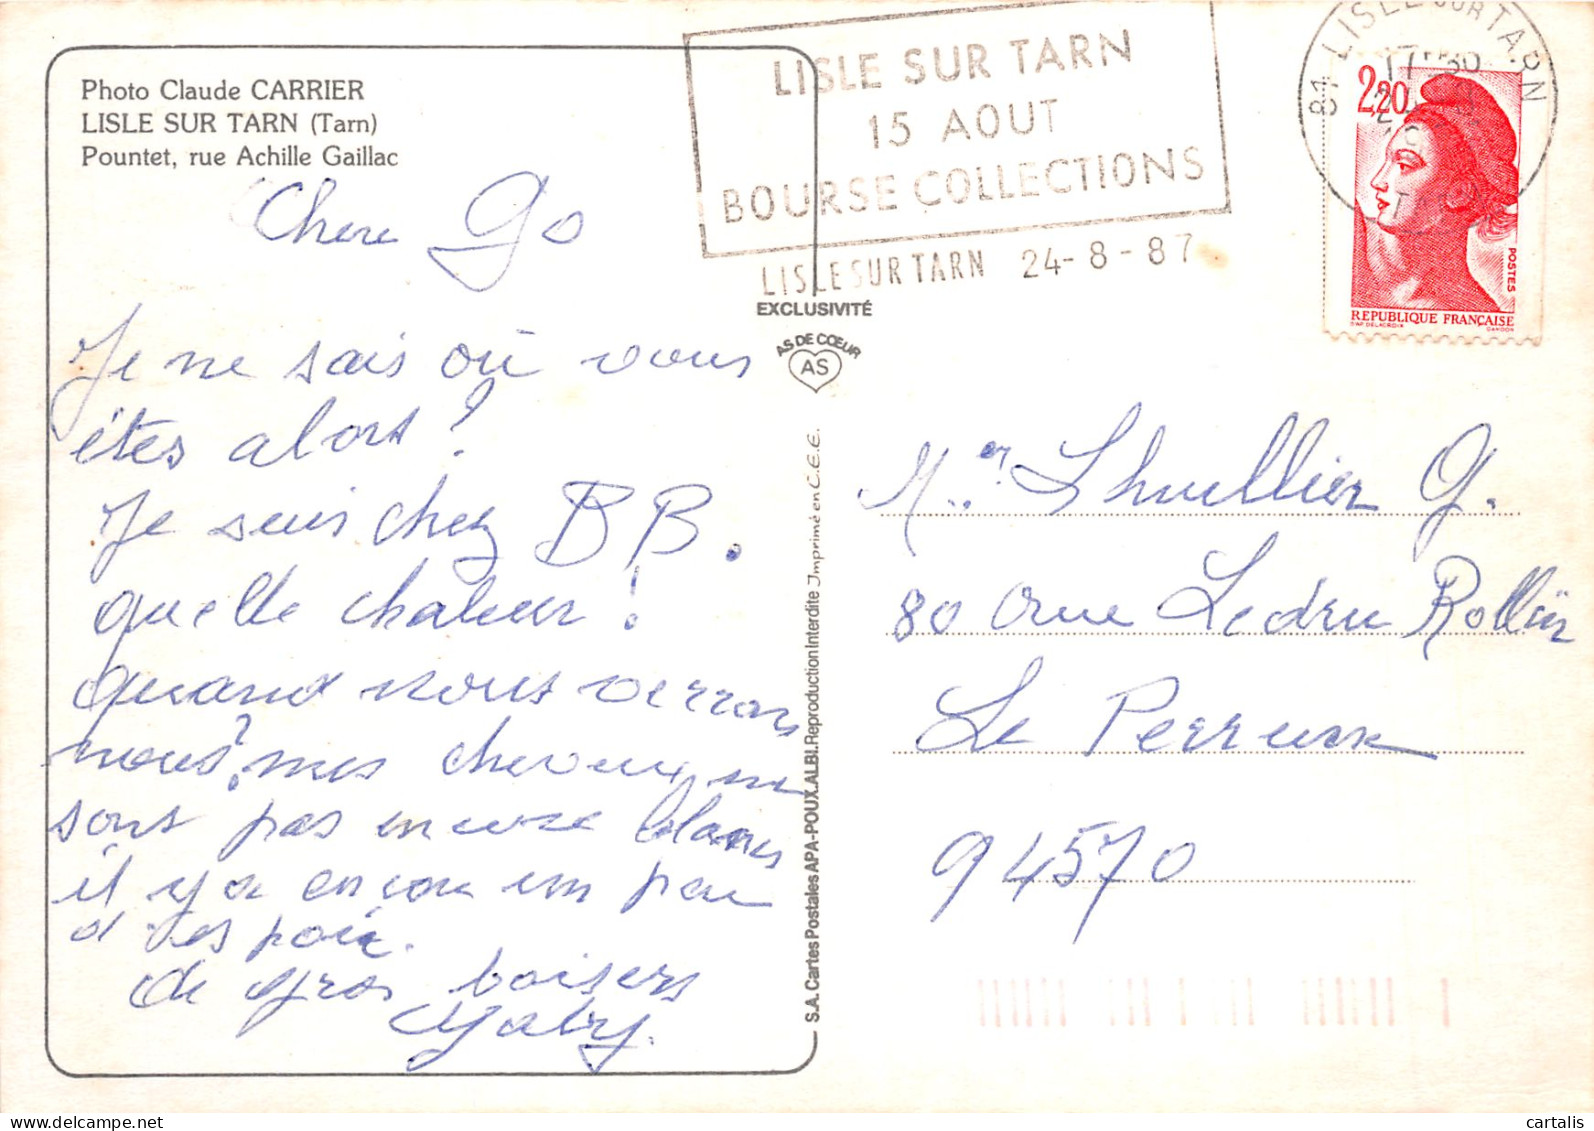 Photo Claude CARRIER
LISLE SUR TARN (Tarn)
Pountet, rue Achille Gaillac
Chere Go
Je ne sais où vous
êtes alors ?
Je suis chez BB.
quelle chaleur !
quand nous verrons
nous ? mes cheveux ne
sont pas encore blancs
il y a encore un peu
d'espoir.
de gros baisers
Gaby.
LISLE SUR TARN
15 AOUT
BOURSE COLLECTIONS
LISLE SUR TARN 24-8-87
EXCLUSIVITÉ
AS DE CŒUR
AS
S.A. Cartes Postales APA-POUX. ALBI. Reproduction Interdite Imprimé en C.E.E.
81 LISLE SUR TARN
17H30
2,20
POSTES
REPUBLIQUE FRANÇAISE
D'AP. DELACROIX GANDON
Mer Lhuillier G.
80 rue Ledru Rollin
Le Perreux
94570
cartalis
delcampe.net